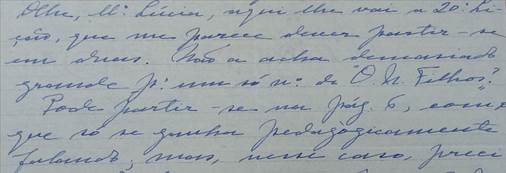 Olhe, M.ª Lúcia, aqui lhe vai a 20.ª Li-
ção, que me parece dever partir-se
em duas. Não a acha demasiado
grande p.ª um só n.º de "O. N. Filhos"?
Pode partir-se na pág. 6, com o
que só se ganha pedagògicamente
falando; mas, nesse caso, preci